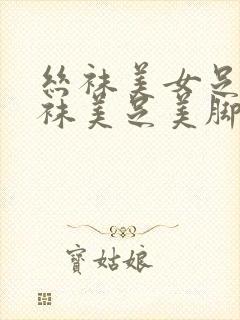 絲袜美女足
袜美足美脚
寶姑娘